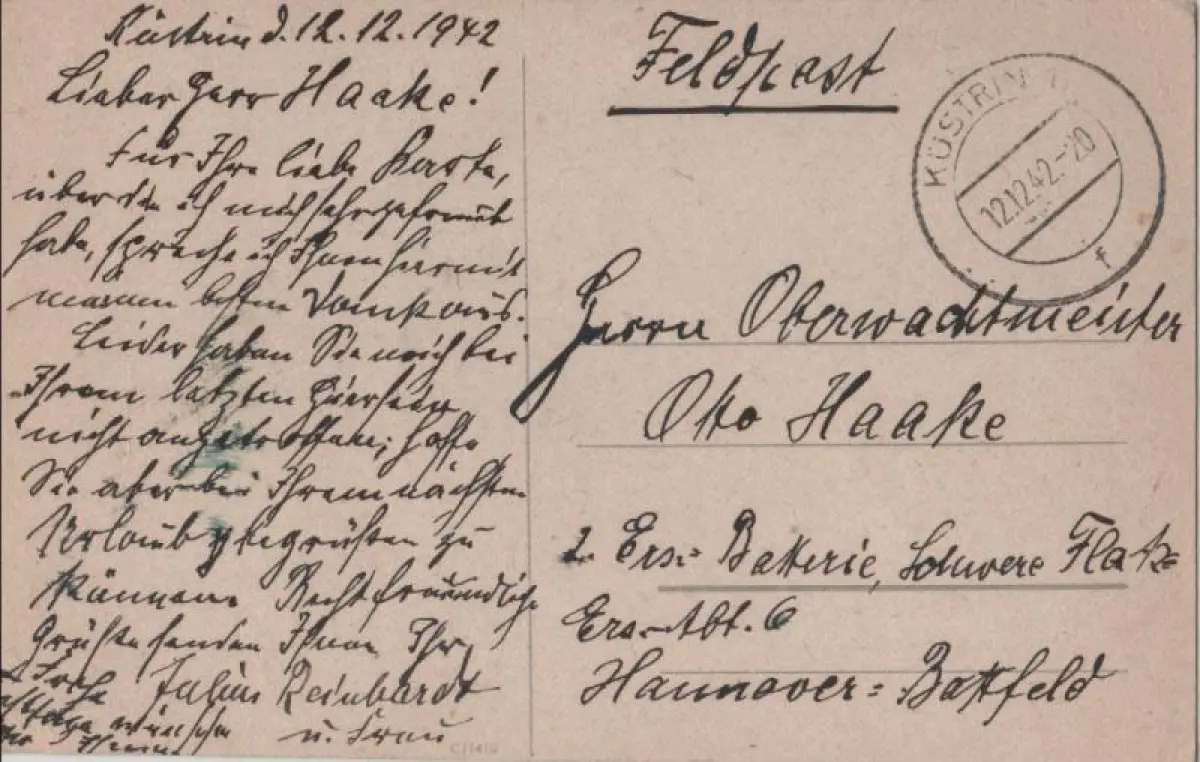 Küstrin d. 12.12.1942
Lieber Herr Haake!
Für Ihre liebe Karte,
über die ich mich sehr gefreut
habe, spreche ich Ihnen hiermit
meinen besten Dank aus.
Leider haben Sie mich bei
Ihrem letzten Hiersein
nicht angetroffen; hoffe
Sie aber bei Ihrem nächsten
Urlaub begrüßen zu
können. Recht freundliche
Grüße senden Ihnen Ihr
Julius Reinhardt
u. Frau
Frohe
Festtage wünschen
wir Ihnen
Feldpost
KÜSTRIN
12.12.42.-20
f
Herrn Oberwachtmeister
Otto Haake
2. Ers.= Batterie, Schwere Flak=
Ers.-Abt. 6
Hannover= Bothfeld